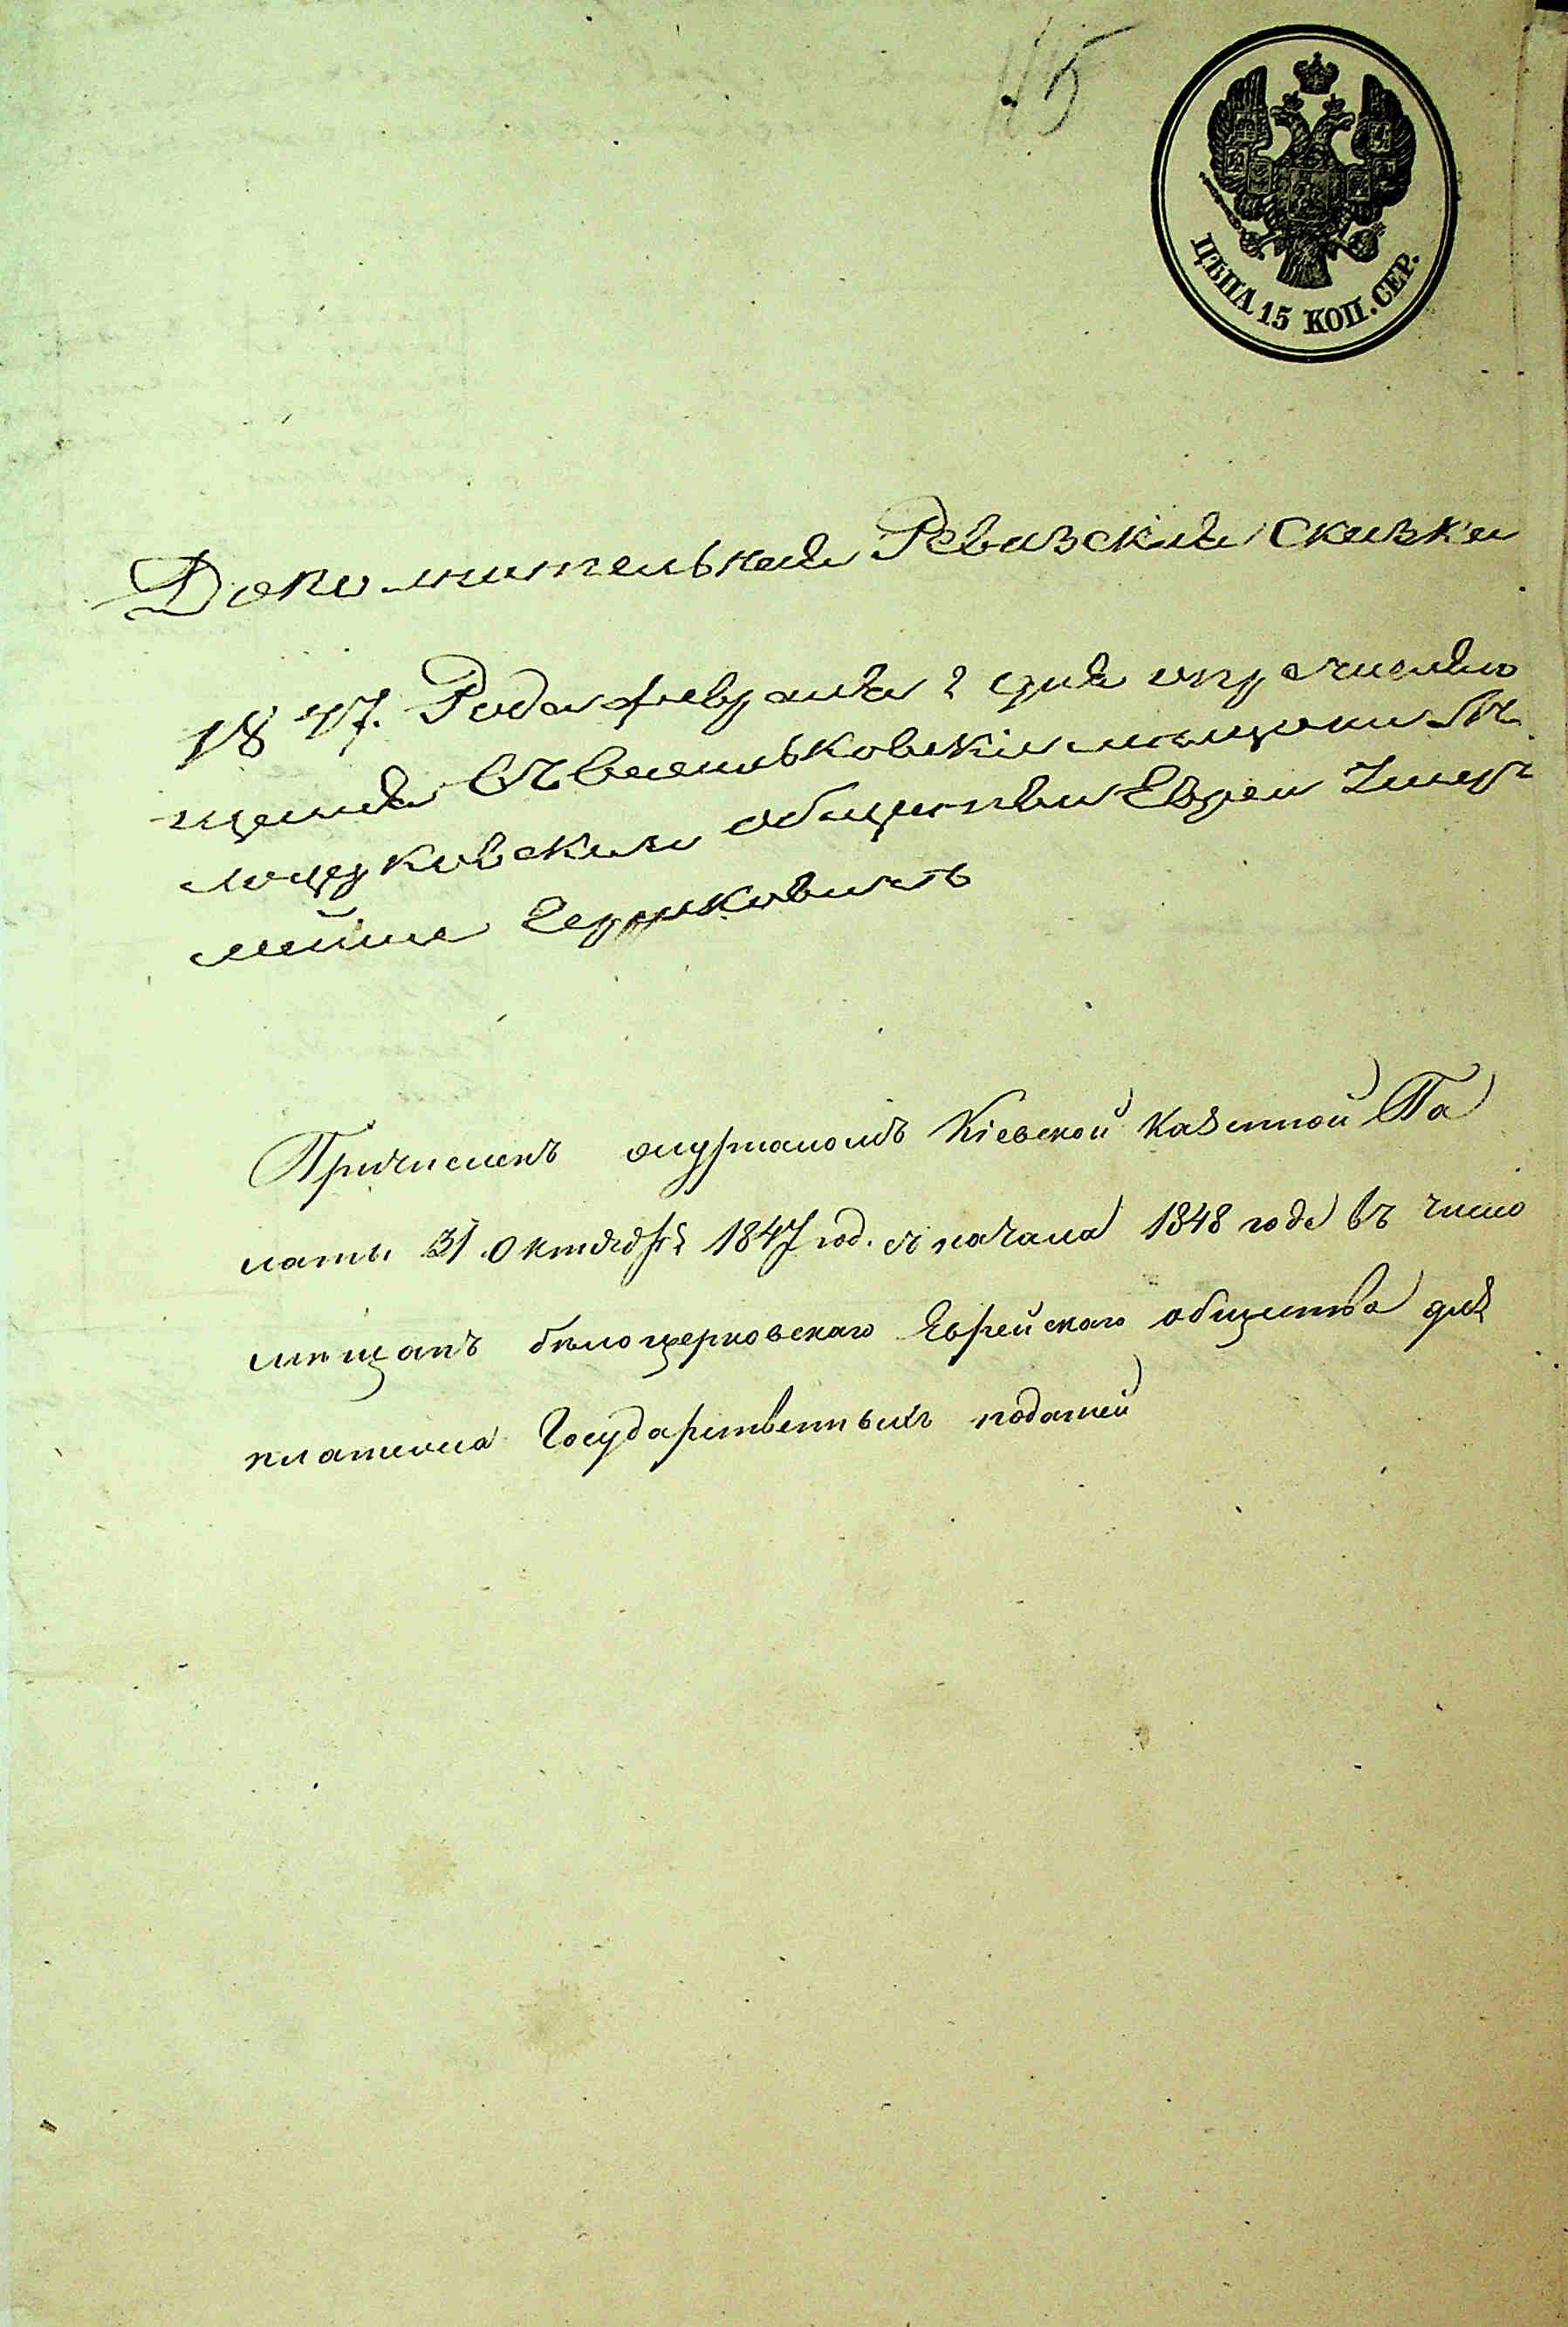 115
ЦѢНА 15 КОП. СЕР.
Дополнительная Ревизская Сказка
1847. Года февраля 2 дня
въ васильковскіе мѣщани Бѣ
лоцерковскаго общества Еврей
Берковичъ
Причисленъ Кіевской Казенной Па
латы 31 Октября 1847 год. съ начала 1848 года въ число
мѣщанъ бѣлоцерковскаго Еврейскаго общества для
платежа Государственныхъ податей